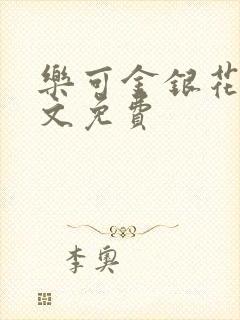 樂可金銀花
文免費
李奧